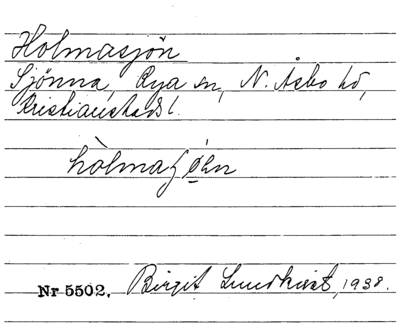 Holmasjön
Sjönna, Rya sn, N. Åsbo hd,
Kristianstads l.
Nr 5502. Birgit Lundkvist, 1938.